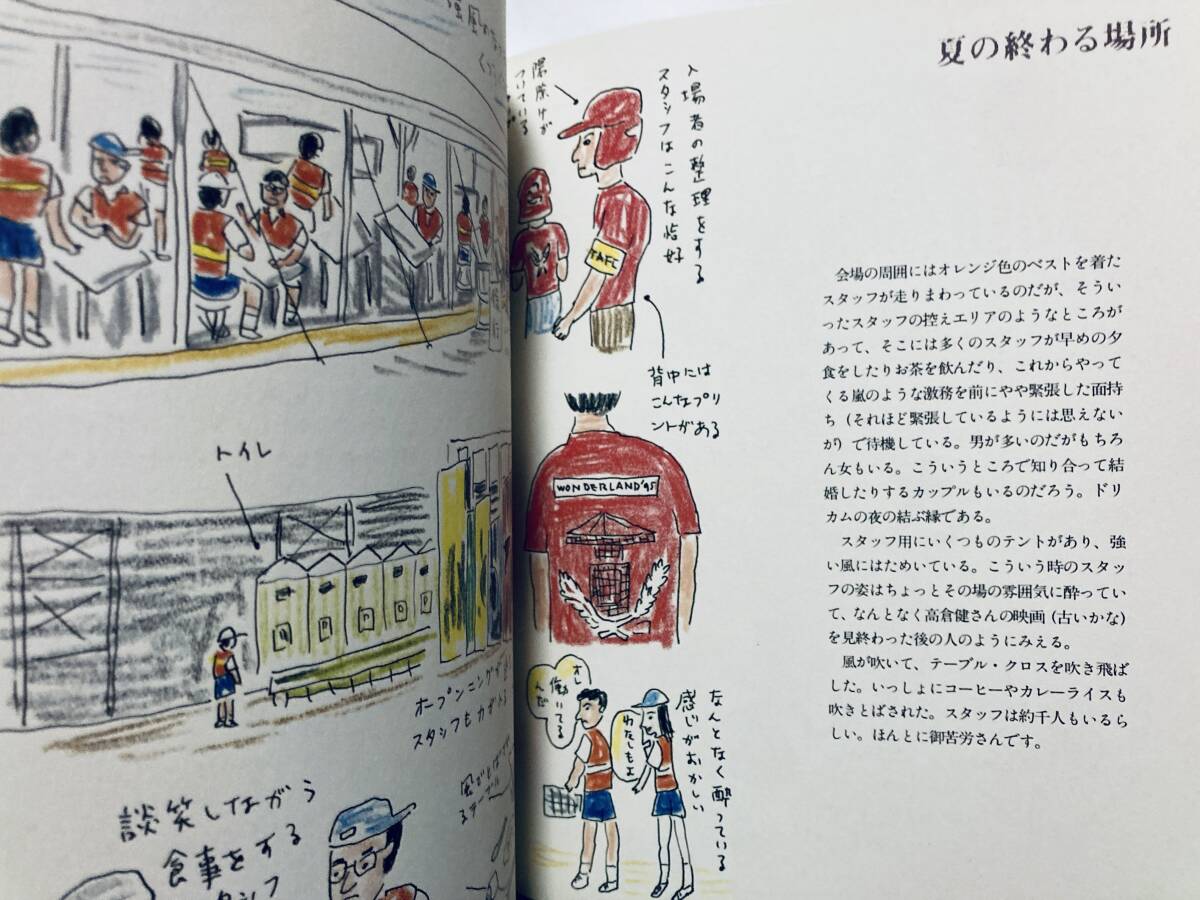 強風が
トイレ
オープンニングが
スタッフもカオ
談笑しながら
食事をする
タッフ
風でとば
るテーブル
入場者の整理をする
スタッフはこんな恰好
ついている
TAFF
背中には
こんなプリ
ントがある
WONDERLAND'95
オレ
働いてる
んだ
わたしもよ
なんとなく酔っている
感じがおかしい
夏の終わる場所
会場の周囲にはオレンジ色のベストを着た
スタッフが走りまわっているのだが、そうい
ったスタッフの控えエリアのようなところが
あって、そこには多くのスタッフが早めの夕
食をしたりお茶を飲んだり、これからやって
くる嵐のような激務を前にやや緊張した面持
ち（それほど緊張しているようには思えない
が）で待機している。男が多いのだがもちろ
ん女もいる。こういうところで知り合って結
婚したりするカップルもいるのだろう。ドリ
カムの夜の結ぶ縁である。
スタッフ用にいくつものテントがあり、強
い風にはためいている。こういう時のスタッ
フの姿はちょっとその場の雰囲気に酔ってい
て、なんとなく高倉健さんの映画（古いかな）
を見終わった後の人のようにみえる。
風が吹いて、テーブル・クロスを吹き飛ば
した。いっしょにコーヒーやカレーライスも
吹きとばされた。スタッフは約千人もいるら
しい。ほんとに御苦労さんです。